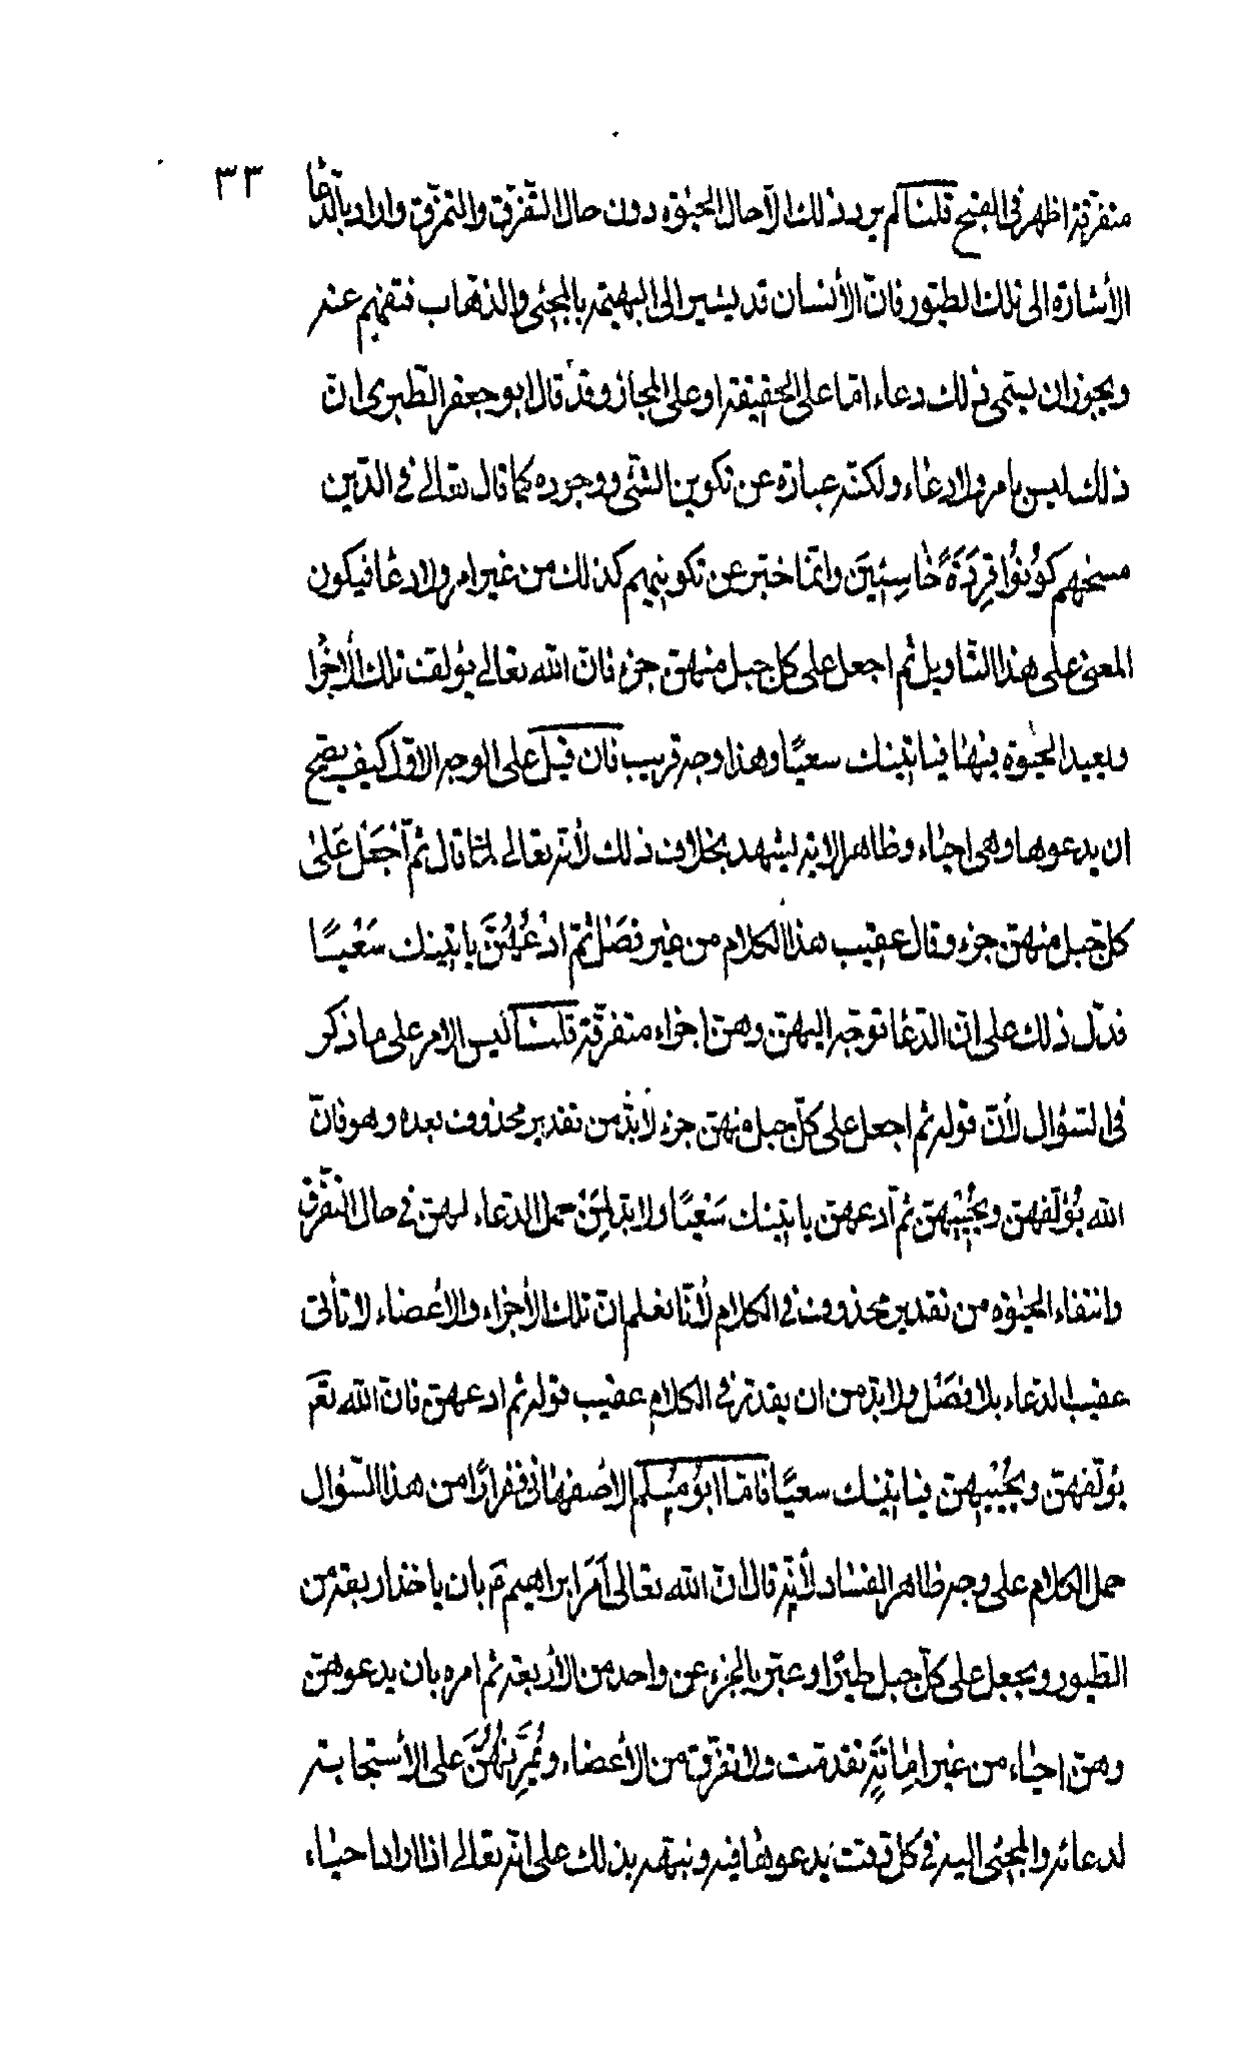 ٣٣
متفرقة اظهر في القبح قلنا لم يرد ذلك الّا حال الحيوة دون حال التّفرّق والتمزّق واراد بالدّعا
الأشارة الى تلك الطيور فانّ الأنسان قد يشير الى البهيمة بالمجئى والذهاب فتفهم عنه
ويجوز ان يسمّى ذلك دعاء امّا على الحقيقة او على المجاز وقد قال ابو جعفر الطّبرى انّ
ذلك ليس بامر ولا دعاء ولكنّه عبارة عن تكوين الشّئى ووجوده كما قال تعالى في الّذين
مسخهم كُونُوا قِرَدَةً خاسِئِينَ وانّما خبّر عن تكوينهم كذلك من غير امر ولا دعا فيكون
المعنى على هذا التّاويل ثم اجعل على كل جبل منهنّ جزء فانّ الله تعالى يؤلف تلك الأجزا
ويعيد الحيوة فيها فياتينك سعيًا وهذا وجه قريب فان قيل على الوجه الاوّل كيف يصحّ
ان يدعوها وهى احياء وظاهر الاية يشهد بخلاف ذلك لأنّه تعالى لمّا قال ثمّ اجْعَلْ عَلى
كلّ جبل منهنّ جزء وقال عقيب هذا الكلام من غير فصل ثمّ ادْعُهُنَّ ياتينك سَعْيًا
فدلّ ذلك على انّ الدّعا توجّه اليهنّ وهنّ اجزاء متفرّقة قلنا ليس الامر على ما ذكر
في السّؤال لأنّ قوله ثم اجعل على كلّ جبل منهنّ جزء لا بدّ من تقدير محذوف بعده وهو فانّ
الله يُؤلّفهنّ ويُحْيِيهنّ ثم ادعهنّ ياتينك سَعْيًا ولا بدّ لِمَنْ حمل الدعاء لهنّ في حال التّفرّق
وانتفاء الحيوة من تقدير محذوف في الكلام لأنّا نعلم انّ تلك الأجزاء والأعضاء لا تأتى
عقيب الدعاء بلا فصل ولا بدّ من ان يقدّر في الكلام عقيب قوله ثم ادعهنّ فانّ الله تعَ
يؤلّفهنّ ويُحْيِيهنّ فياتينك سعيًا فامّا ابو مُسلم الأصفهانى ففرارًا من هذا السّؤال
حمل الكلام على وجه ظاهر الفساد لأنّه قال انّ الله تعالى اَمَرَ ابراهيم ع بان ياخذ اربعة من
الطّيور ويجعل على كلّ جبل طيرًا وعبّر بالجزء عن واحد من الأربعة ثم امره بان يدعوهنّ
وهنّ احياء من غير اماتة تقدمت ولا تفرّق من الأعضاء ويُمرِّنهُنَّ على الأستجابة
لدعائه والمجئى اليه في كل وقت يدعوها فيه ونبّهه بذلك على انّه تعالى اذا اراد احياء